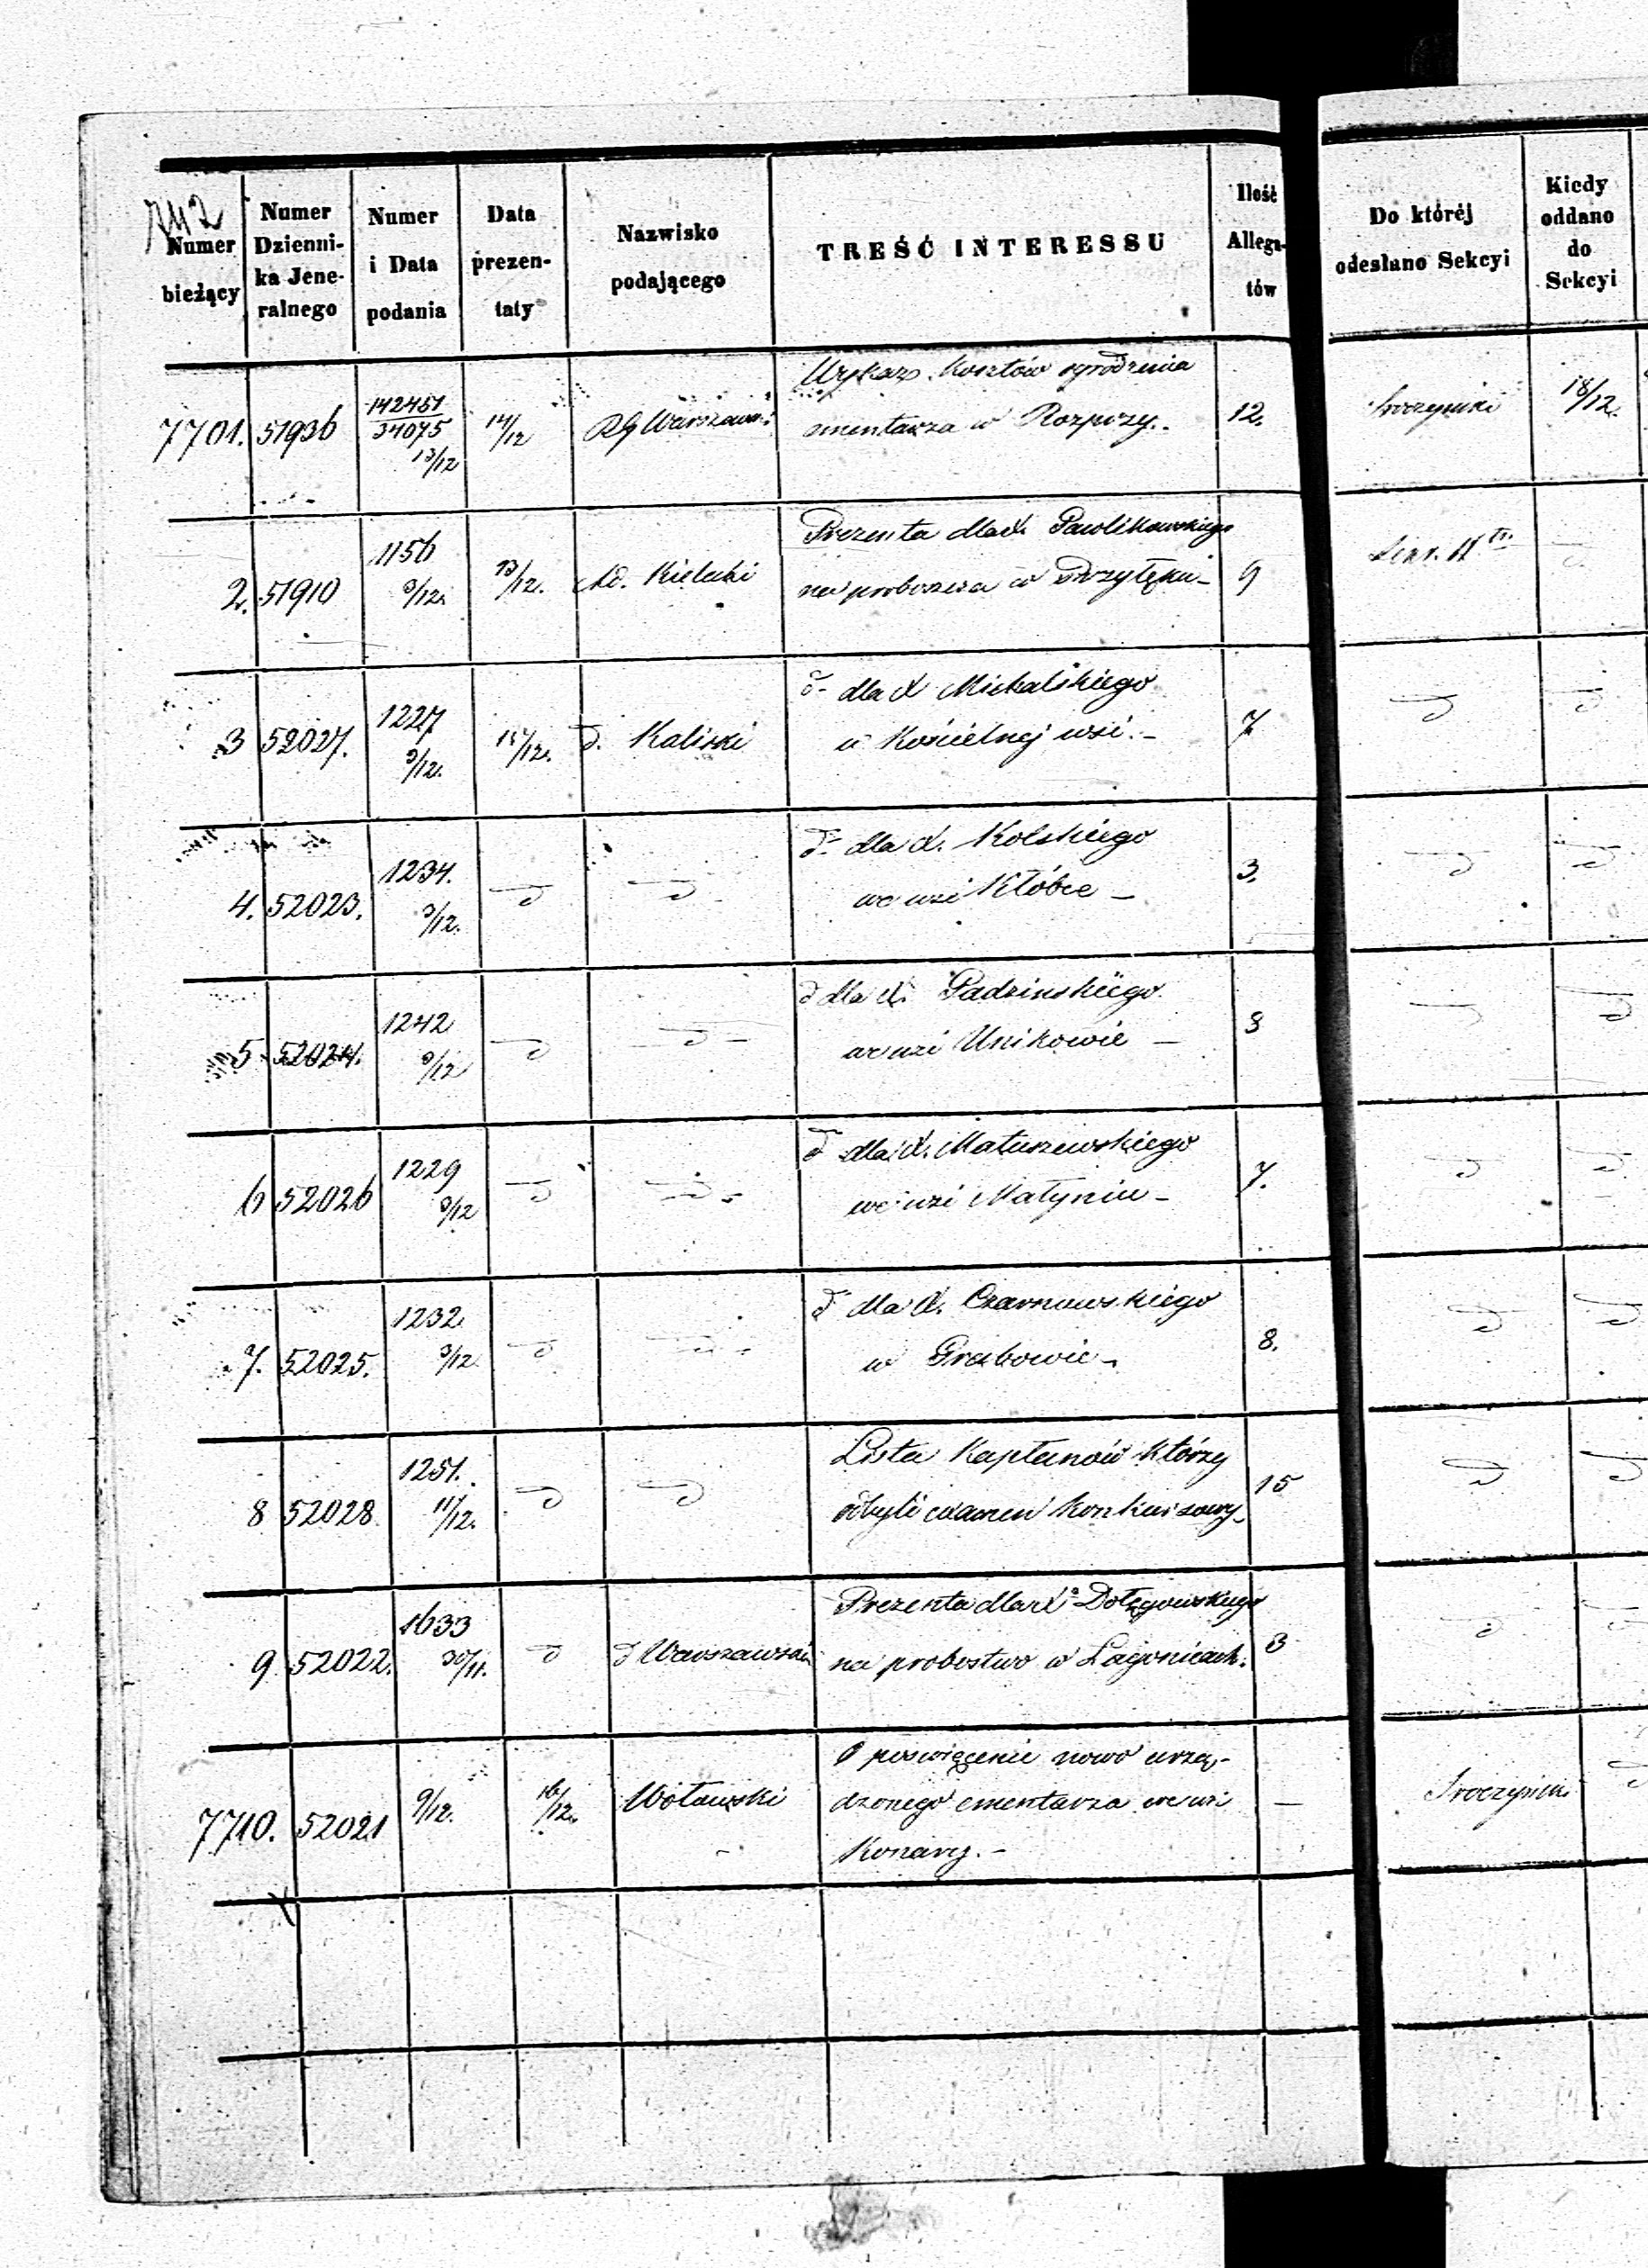 Numer bieżący
Numer Dzienni-ka Jene-ralnego
Numer i Data podania
Data prezen-taty
Nazwisko podającego
TREŚĆ INTERESSU
Ilość Allega-tów
Do któréj odesłano Sekcyi
Kiedy oddano do Sekcyi
7701. 51936 142451/34075 13/12 14/12 RG Warszaws: Wykaz Kosztów ogrodzenia 12. 18/12.
cmentarza w Rozprzy.
2. 51910 1156 9/12. 13/12. Ad. Kielecki Prezenta dla X. Pawlikowskiego 9
na proboszcza w Przytęku
3 52027. 1227 9/12. 15/12. d. Kaliski d- dla X Michalskiego 7
w Kościelnej wsi.-
4. 52023. 1234. 9/12. d d d- dla X. Kolskiego 3. d d
we wsi Kłóbce -
5 52024. 1242 9/12 d d d dla X. 8 d
we wsi Unikowie -
6 52026 1229 9/12 d d d dla X. Matuszewskiego 7. d d
we wsi Małyniu -
7. 52025. 1232 9/12. d d dla X. Czarnowskiego 8. d d
w Grabowie -
8 52028 1251. 11/12. d d Lista Kapłanów którzy 15 d d
odbyli examen konkursowy.
9 52022. 1633 30/11. d d Warszawski Prezenta dla X Dołęgowskiego 3 d
na probostwo w Łagonicach.
7710. 52021 9/12. 16/12. Wołowski O poświęcenie nowo urzą- —
dzonego cmentarza we wsi
Konary. -